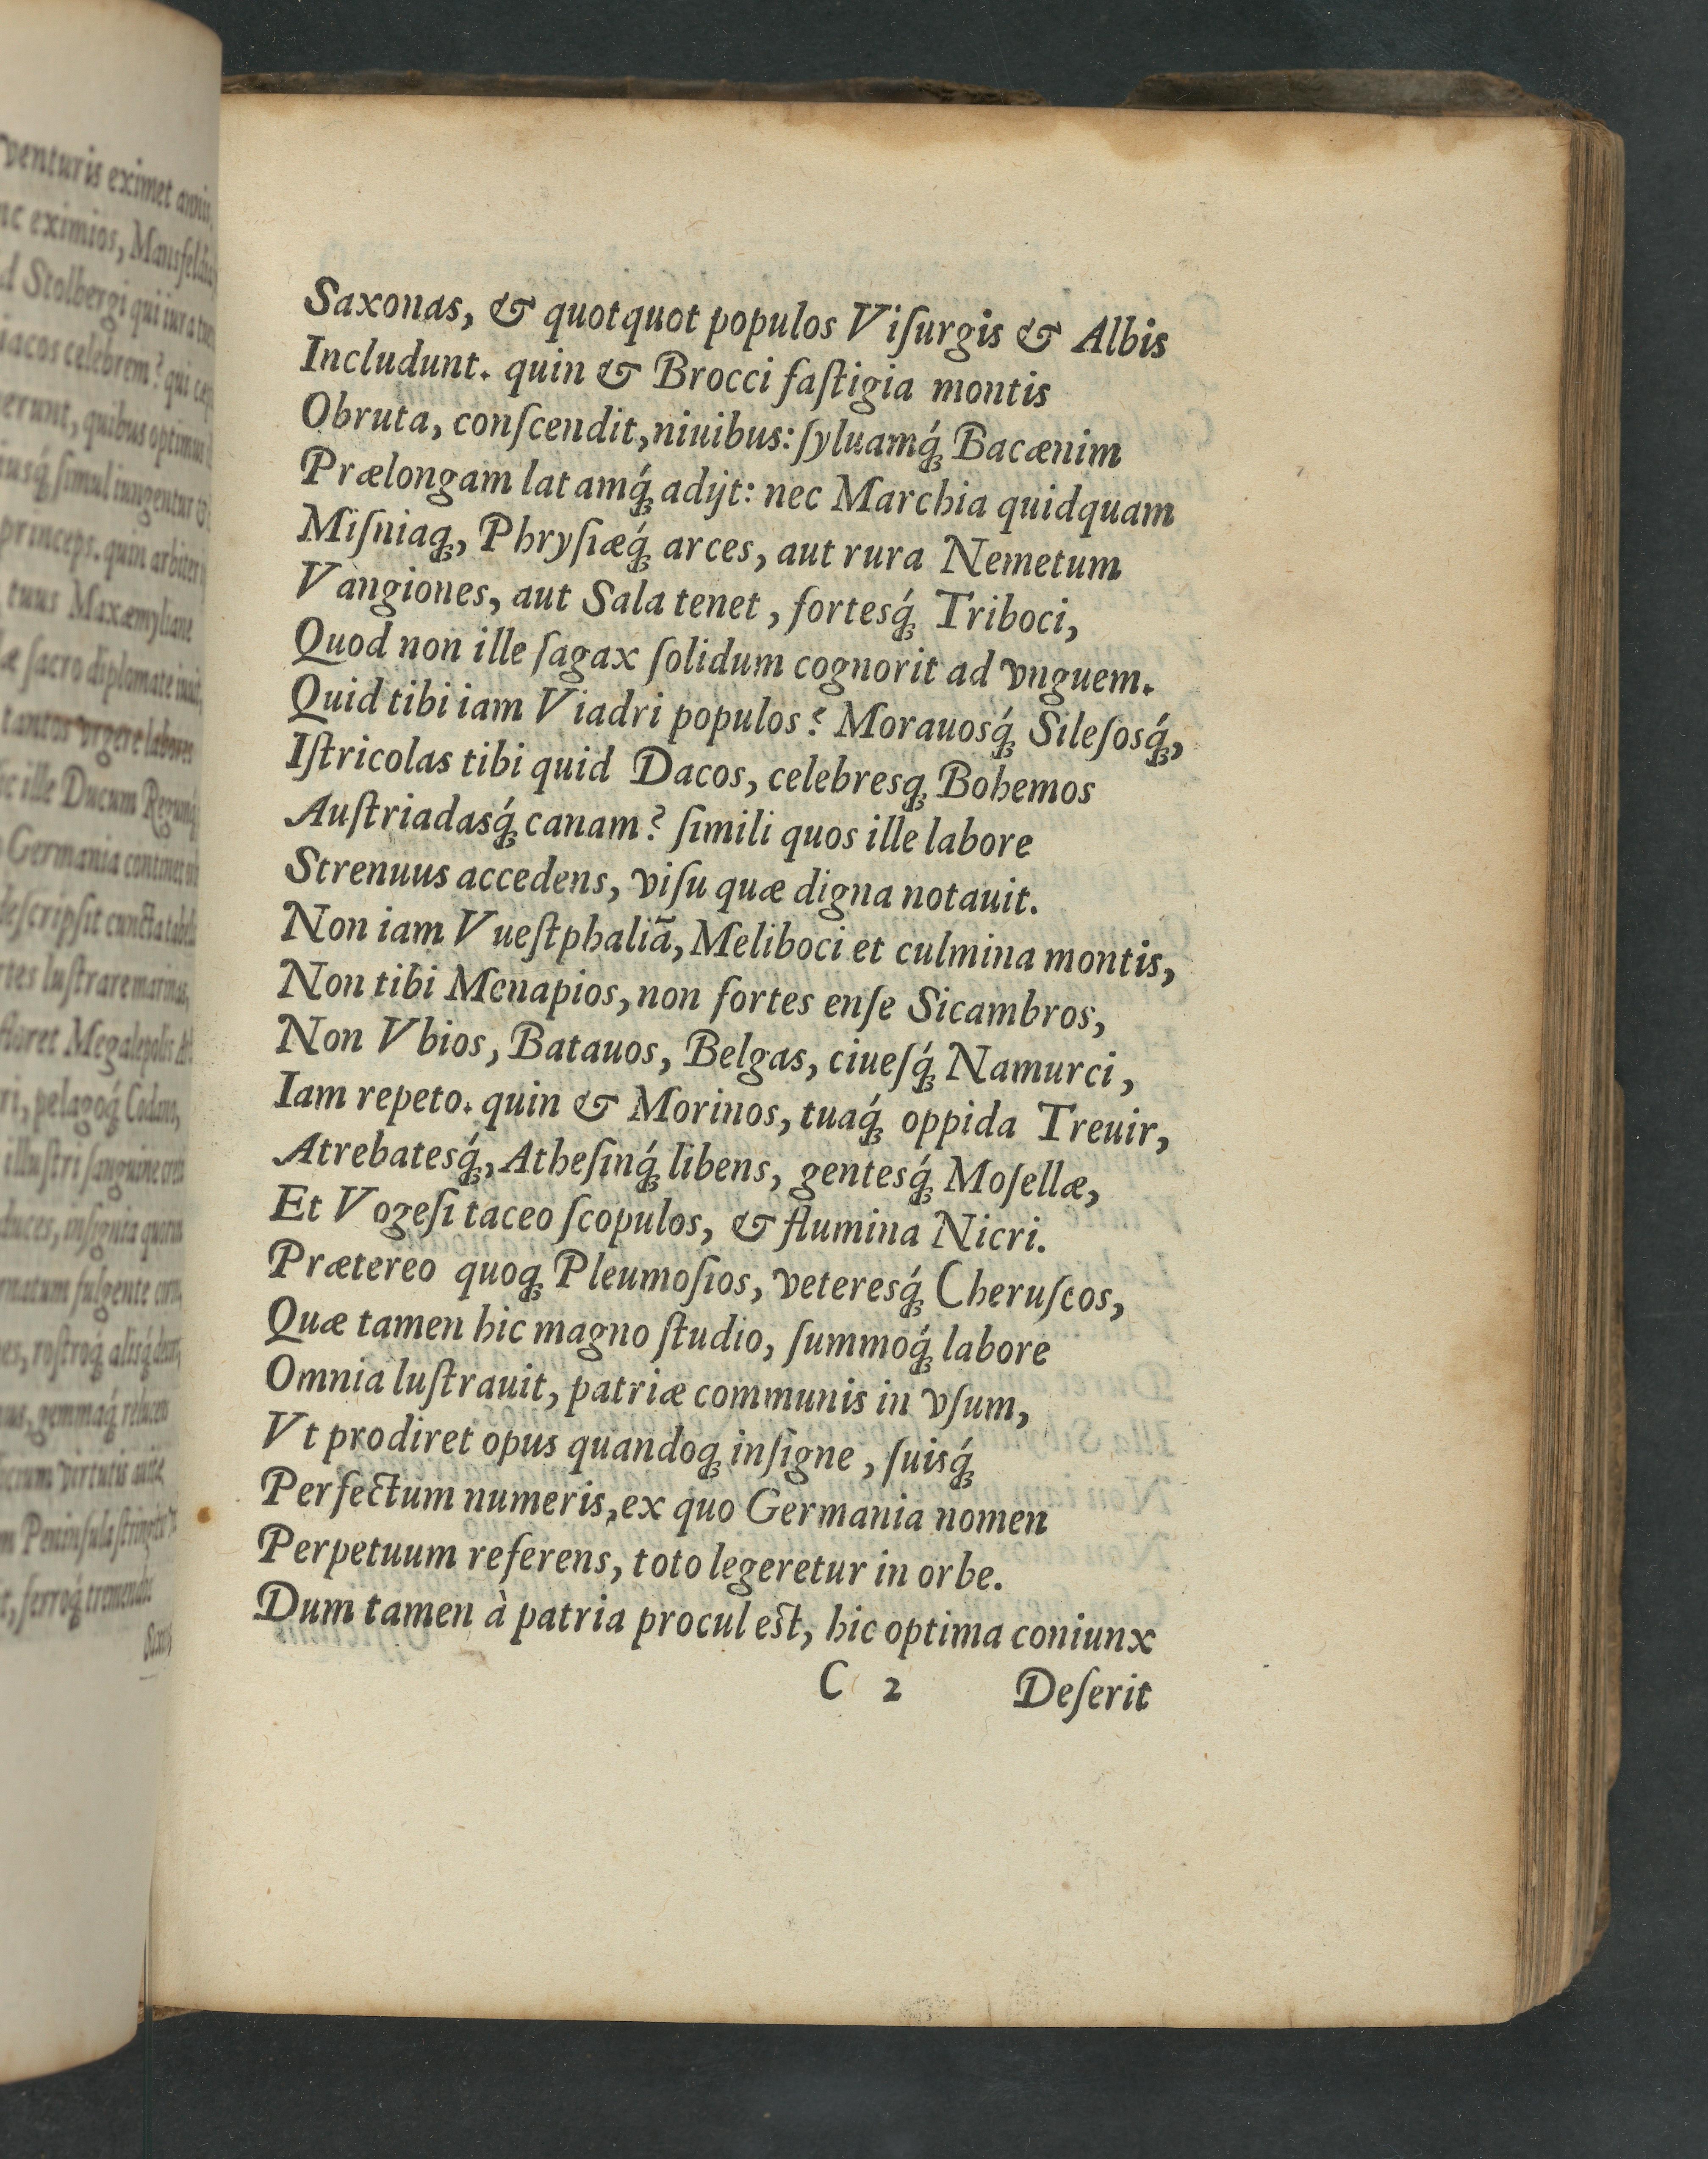 venturis eximet annis
nc eximios, Mansfeld
d Stolbergi qui iura tu
iacos celebrem? qui cæp
erunt, quibus optimus
usq́ꝫ simul iungentur &
princeps. quin arbiter
tuus Maxæmyliane
æ sacro diplomate
tantos vrgere labores
ic ille Ducum Regum
Germania continet
descripsit cuncta tabel
rtes lustrare marinas,
floret Megalepolis
ri, pelagoq́ꝫ Codano,
illustri sanguine
duces, insignia quoru
rnatum fulgente
es, rostroq́ꝫ alisq́ꝫ
us, gemmaq́ꝫ
virtutis
m Peninsula stringit
t, ferroq́ꝫ tremendos
Saxonas, & quotquot populos Viſurgis & Albis
Includunt. quin & Brocci faſtigia montis
Obruta, conſcendit, niuibus: ſyluamq́ꝫ Bacænim
Prælongam latamq́ꝫ adijt: nec Marchia quidquam
Miſniaqꝫ, Phryſiæq́ꝫ arces, aut rura Nemetum
Vangiones, aut Sala tenet, fortesq́ꝫ Triboci,
Quod non ille ſagax ſolidum cognorit ad vnguem.
Quid tibi iam Viadri populos? Morauosq́ꝫ Sileſosq́ꝫ,
Iſtricolas tibi quid Dacos, celebresqꝫ Bohemos
Auſtriadasq́ꝫ canam? ſimili quos ille labore
Strenuus accedens, viſu quæ digna notauit.
Non iam Vueſtphaliã, Meliboci et culmina montis,
Non tibi Menapios, non fortes enſe Sicambros,
Non Vbios, Batauos, Belgas, ciueſq́ꝫ Namurci,
Iam repeto. quin & Morinos, tuaq́ꝫ oppida Treuir,
Atrebatesq́ꝫ, Atheſinq́ꝫ libens, gentesq́ꝫ Moſellæ,
Et Vogeſi taceo ſcopulos, & flumina Nicri.
Prætereo quoqꝫ Pleumoſios, veteresq́ꝫ Cheruſcos,
Quæ tamen hic magno ſtudio, ſummoq́ꝫ labore
Omnia luſtrauit, patriæ communis in vſum,
Vt prodiret opus quandoqꝫ inſigne, ſuisq́ꝫ
Perfectum numeris, ex quo Germania nomen
Perpetuum referens, toto legeretur in orbe.
Dum tamen à patria procul eſt, hic optima coniunx
C 2 Deſerit